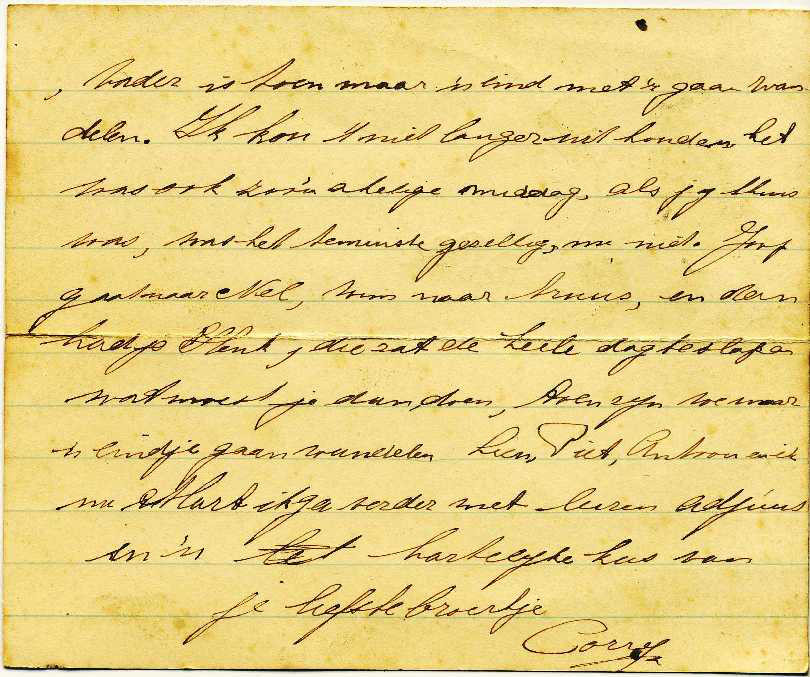 , Vader is toen maar 'n eind met 'r gaan wan
delen. Ik kon 't niet langer uithouden het
was ook zoo'n akelige middag, als jy thuis
was, was het teminste gezellig, nu niet. Joop
gaat naar Nel, Wim naar Truus, en dan
had je Henk, die zat de heele dag te slapen
wat moest je dan doen, toen zyn we maar
'n eindje gaan wandelen Lien, Piet, Antoon en ik
nu Mart ik ga verder met leeren adjuus
en 'n hartelyke kus van
je liefste broertje
Corry